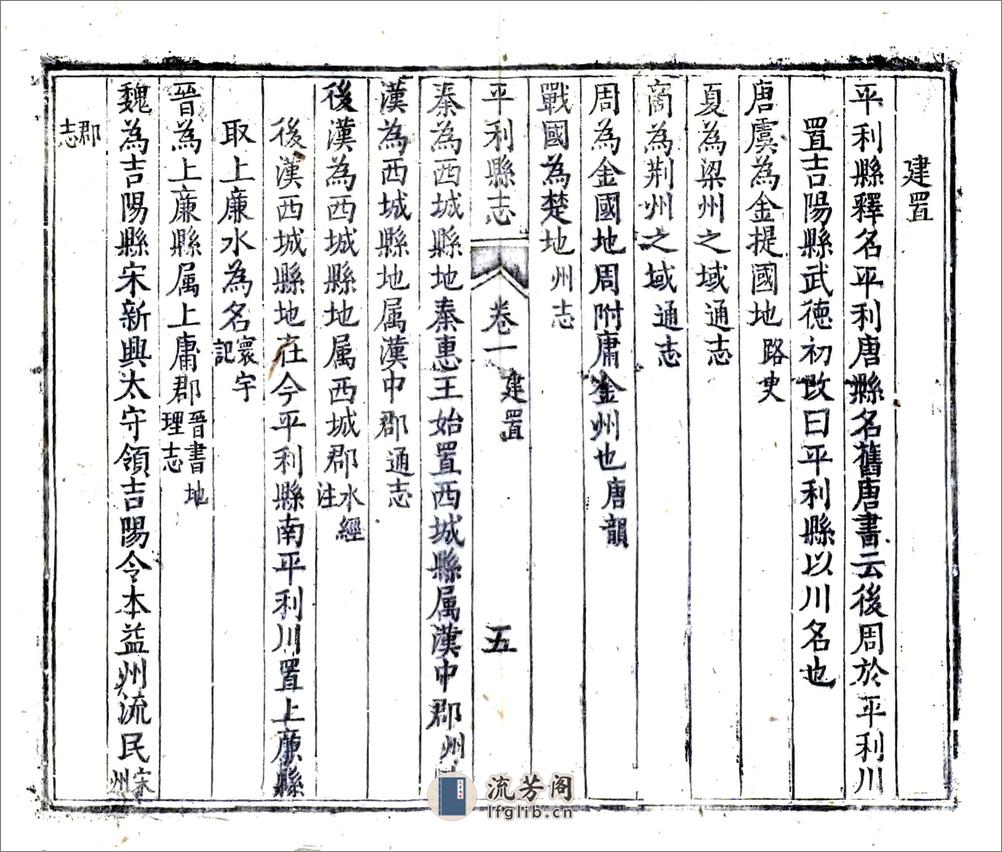 建置
平利縣釋名平利唐縣名舊唐書云後周於平利川
置吉陽縣武德初改曰平利縣以川名也
唐虞為金提國地路史
夏為梁州之域通志
商為荆州之域通志
周為金國地周附庸金州也唐韻
戰國為楚地州志
平利縣志 卷一 建置 五
秦為西城縣地秦惠王始置西城縣属漢中郡州
漢為西城縣地属漢中郡通志
後漢為西城縣地属西城郡水經注
後漢西城縣地在今平利縣南平利川置上廉縣
取上廉水為名寰宇記
晉為上廉縣属上庸郡晉書地理志
魏為吉陽縣宋新興太守領吉陽令本益州流民宋州
郡志
流芳阁
lfglib.cn